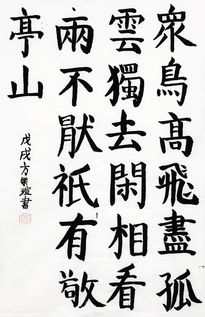 眾鳥高飛盡孤
雲獨去閑相看
兩不厭祇有敬
亭山
戊戌方
書